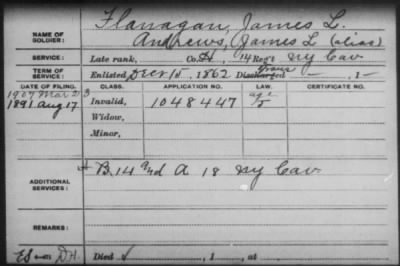 Flanagan, James L.
NAME OF SOLDIER: Andrews, James L (alias)
SERVICE: Late rank, Co. H, 14 Reg't NY Cav
TERM OF SERVICE: Enlisted Decr 15, 1862 Discharged , 1
DATE OF FILING. CLASS. APPLICATION NO. LAW. CERTIFICATE NO.
1907 Mar 2 Invalid, 1048447 age
1891 Aug 17
Widow,
Minor,
ADDITIONAL SERVICES: B, 14 and A 18 NY Cav
REMARKS:
Died , 1 , at